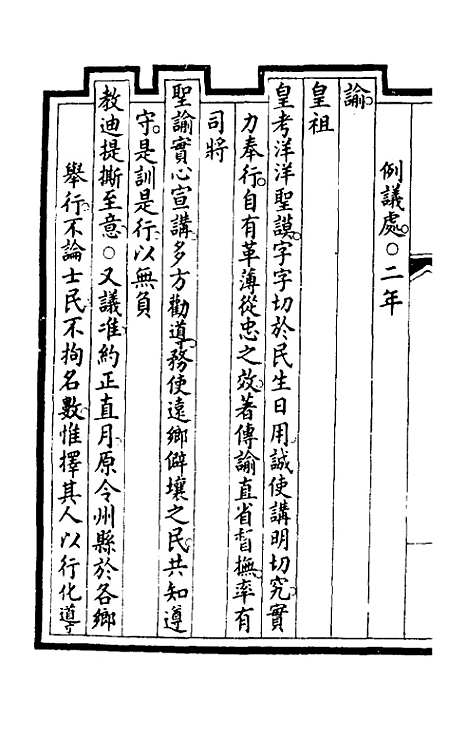 例議處○二年
諭
皇祖
皇考洋洋聖謨字字切於民生日用誠使講明切究實
力奉行自有革薄從忠之效著傳諭直省督撫率有
司將
聖諭實心宣講多方勸導務使遠鄉僻壤之民共知遵
守是訓是行以無負
教迪提撕至意○又議准約正直月原令州縣於各鄉
舉行不論士民不拘名數惟擇其人以行化導